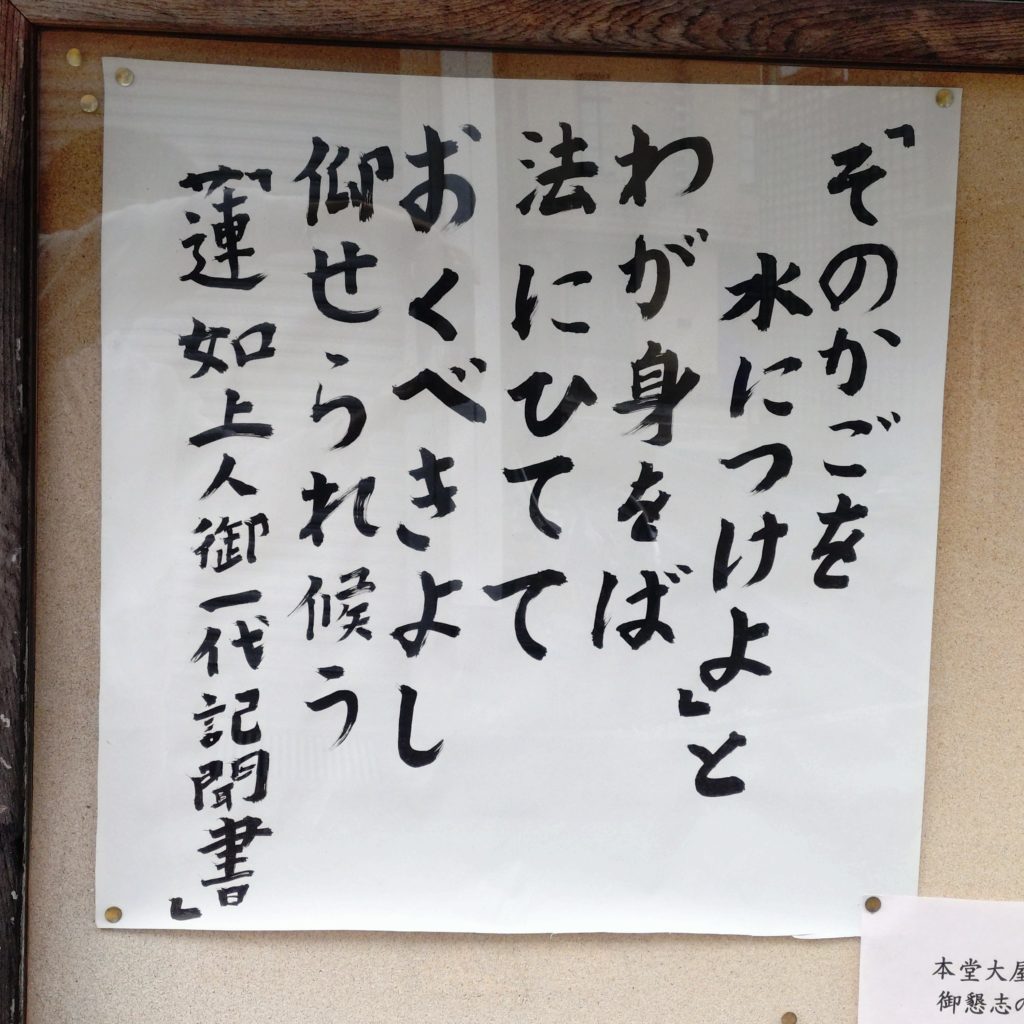 「そのかごを
水につけよ」と
わが身をば
法にひてて
おくべきよし
仰せられ候う
「蓮如上人御一代記聞書」
本堂大屋
御懇志の